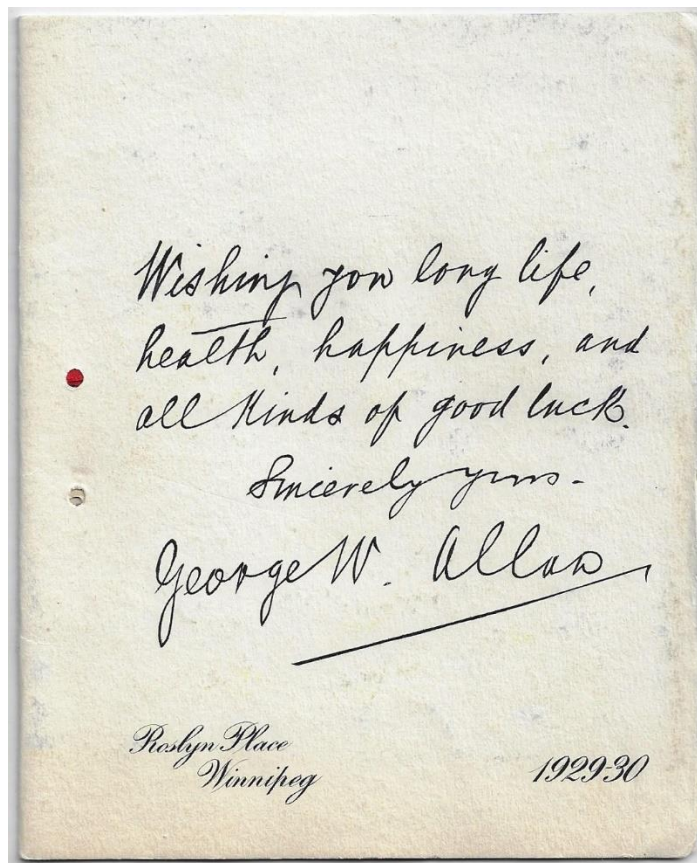 Wishing you long life,
health, happiness, and
all kinds of good luck.
Sincerely yours-
George W. Allan
Roslyn Place
Winnipeg
1929-30